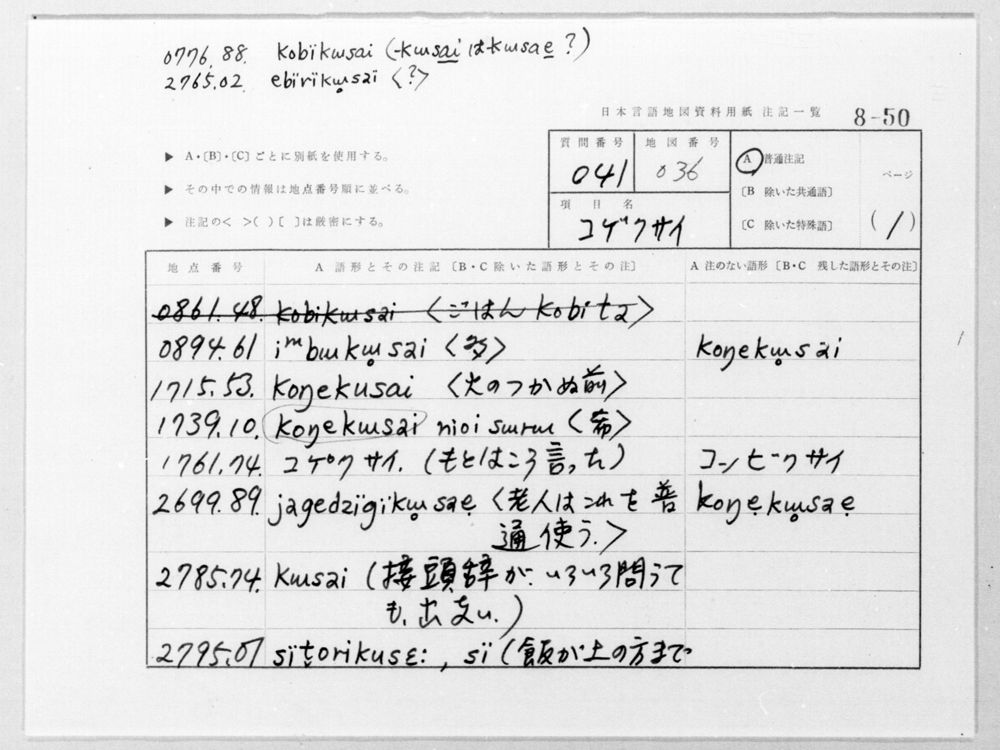 0776.88. kobïkɯsai (-kɯsai は-kɯsae ?)
2765.02 ebïrïkɯ̥saï 〈?〉
日本言語地図資料用紙 注記一覧 8-50
▶ A・〔B〕・〔C〕ごとに別紙を使用する。
▶ その中での情報は地点番号順に並べる。
▶ 注記の< >( )[ ]は厳密にする。
質問番号 地図番号
041 036
項目名
コゲクサイ
A 普通注記
〔B 除いた共通語〕
〔C 除いた特殊語〕
ページ
(1)
地点番号 A 語形とその注記〔B・C 除いた語形とその注〕 A 注のない語形〔B・C 残した語形とその注〕
0861.48. kobikɯsai 〈ごはん kobita〉
0894.61 iᵐbɯkɯ̥sai 〈多〉 koŋekɯ̥sai
1715.53. koŋekusai 〈火のつかぬ前〉
1739.10. koŋekɯsai nioi sɯrɯ 〈希〉
1761.74. コケ゚クサイ. (もとはこう言った) コンビクサイ
2699.89. jagedzïgïkɯ̥sae̞ 〈老人はこれを普 koŋe̞kɯ̥sae̞
通使う.〉
2785.74. kɯsai (接頭辞が.いろいろ問うて
も.出ない.)
2795.07 sït̬orikusɛː, sï (飯が上の方まで